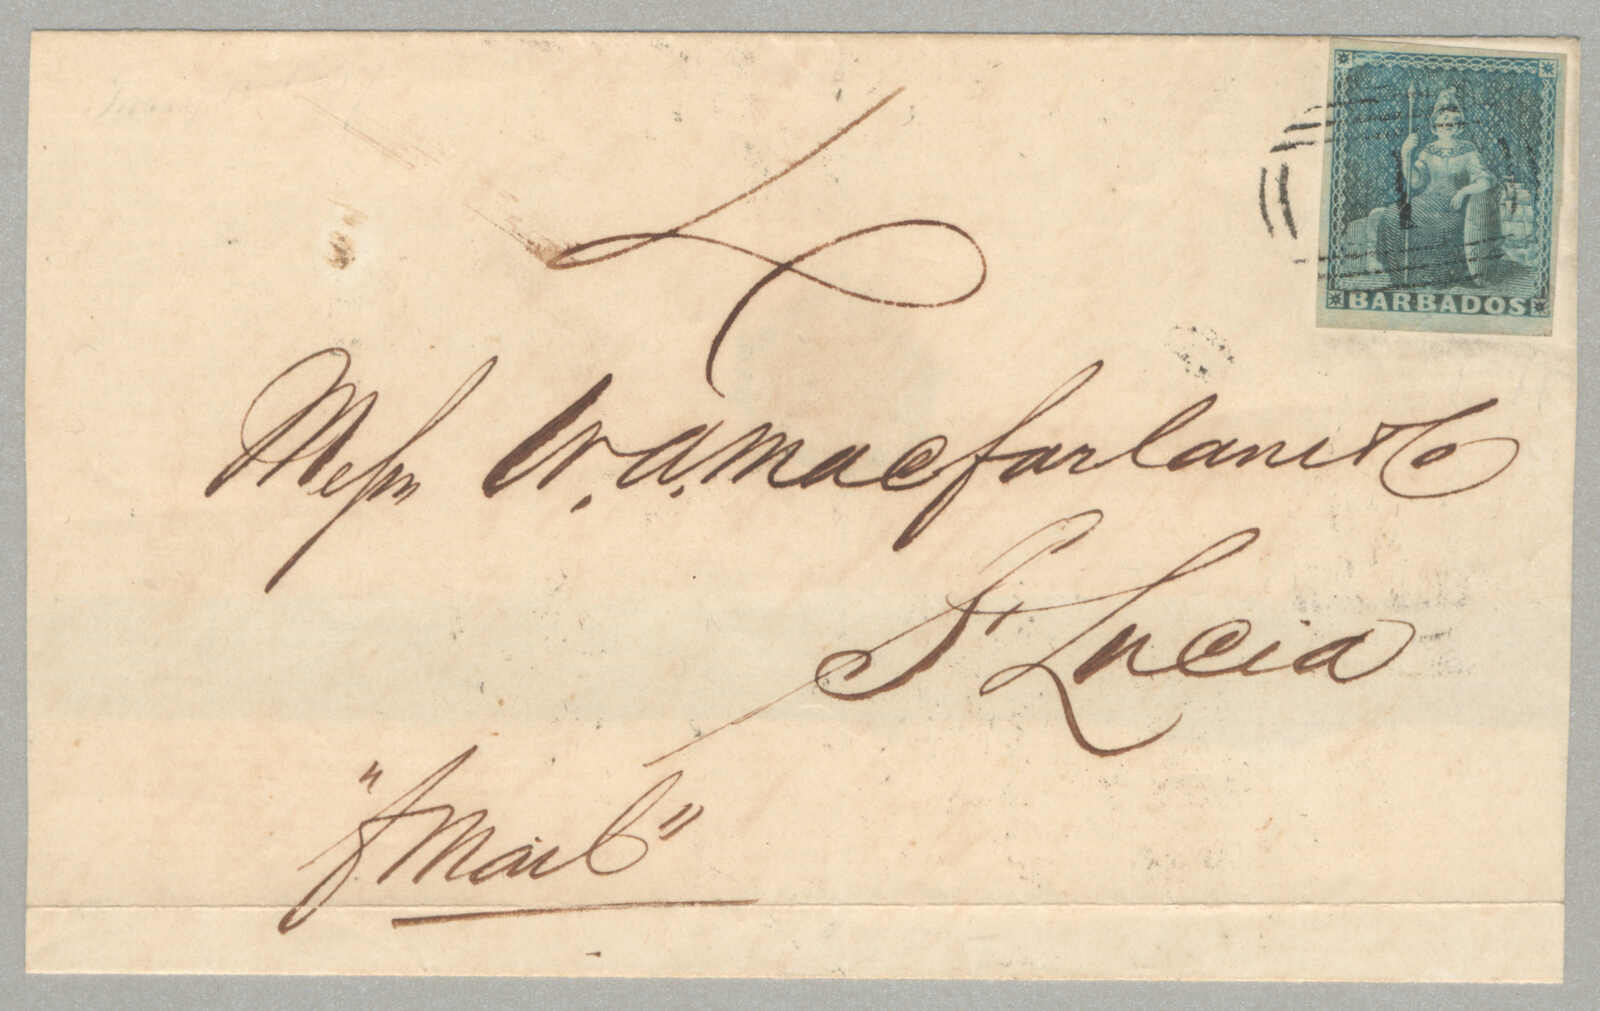 BARBADOS
1
Messrs W. A. Macfarlane & Co
St Lucia
"p Mail"